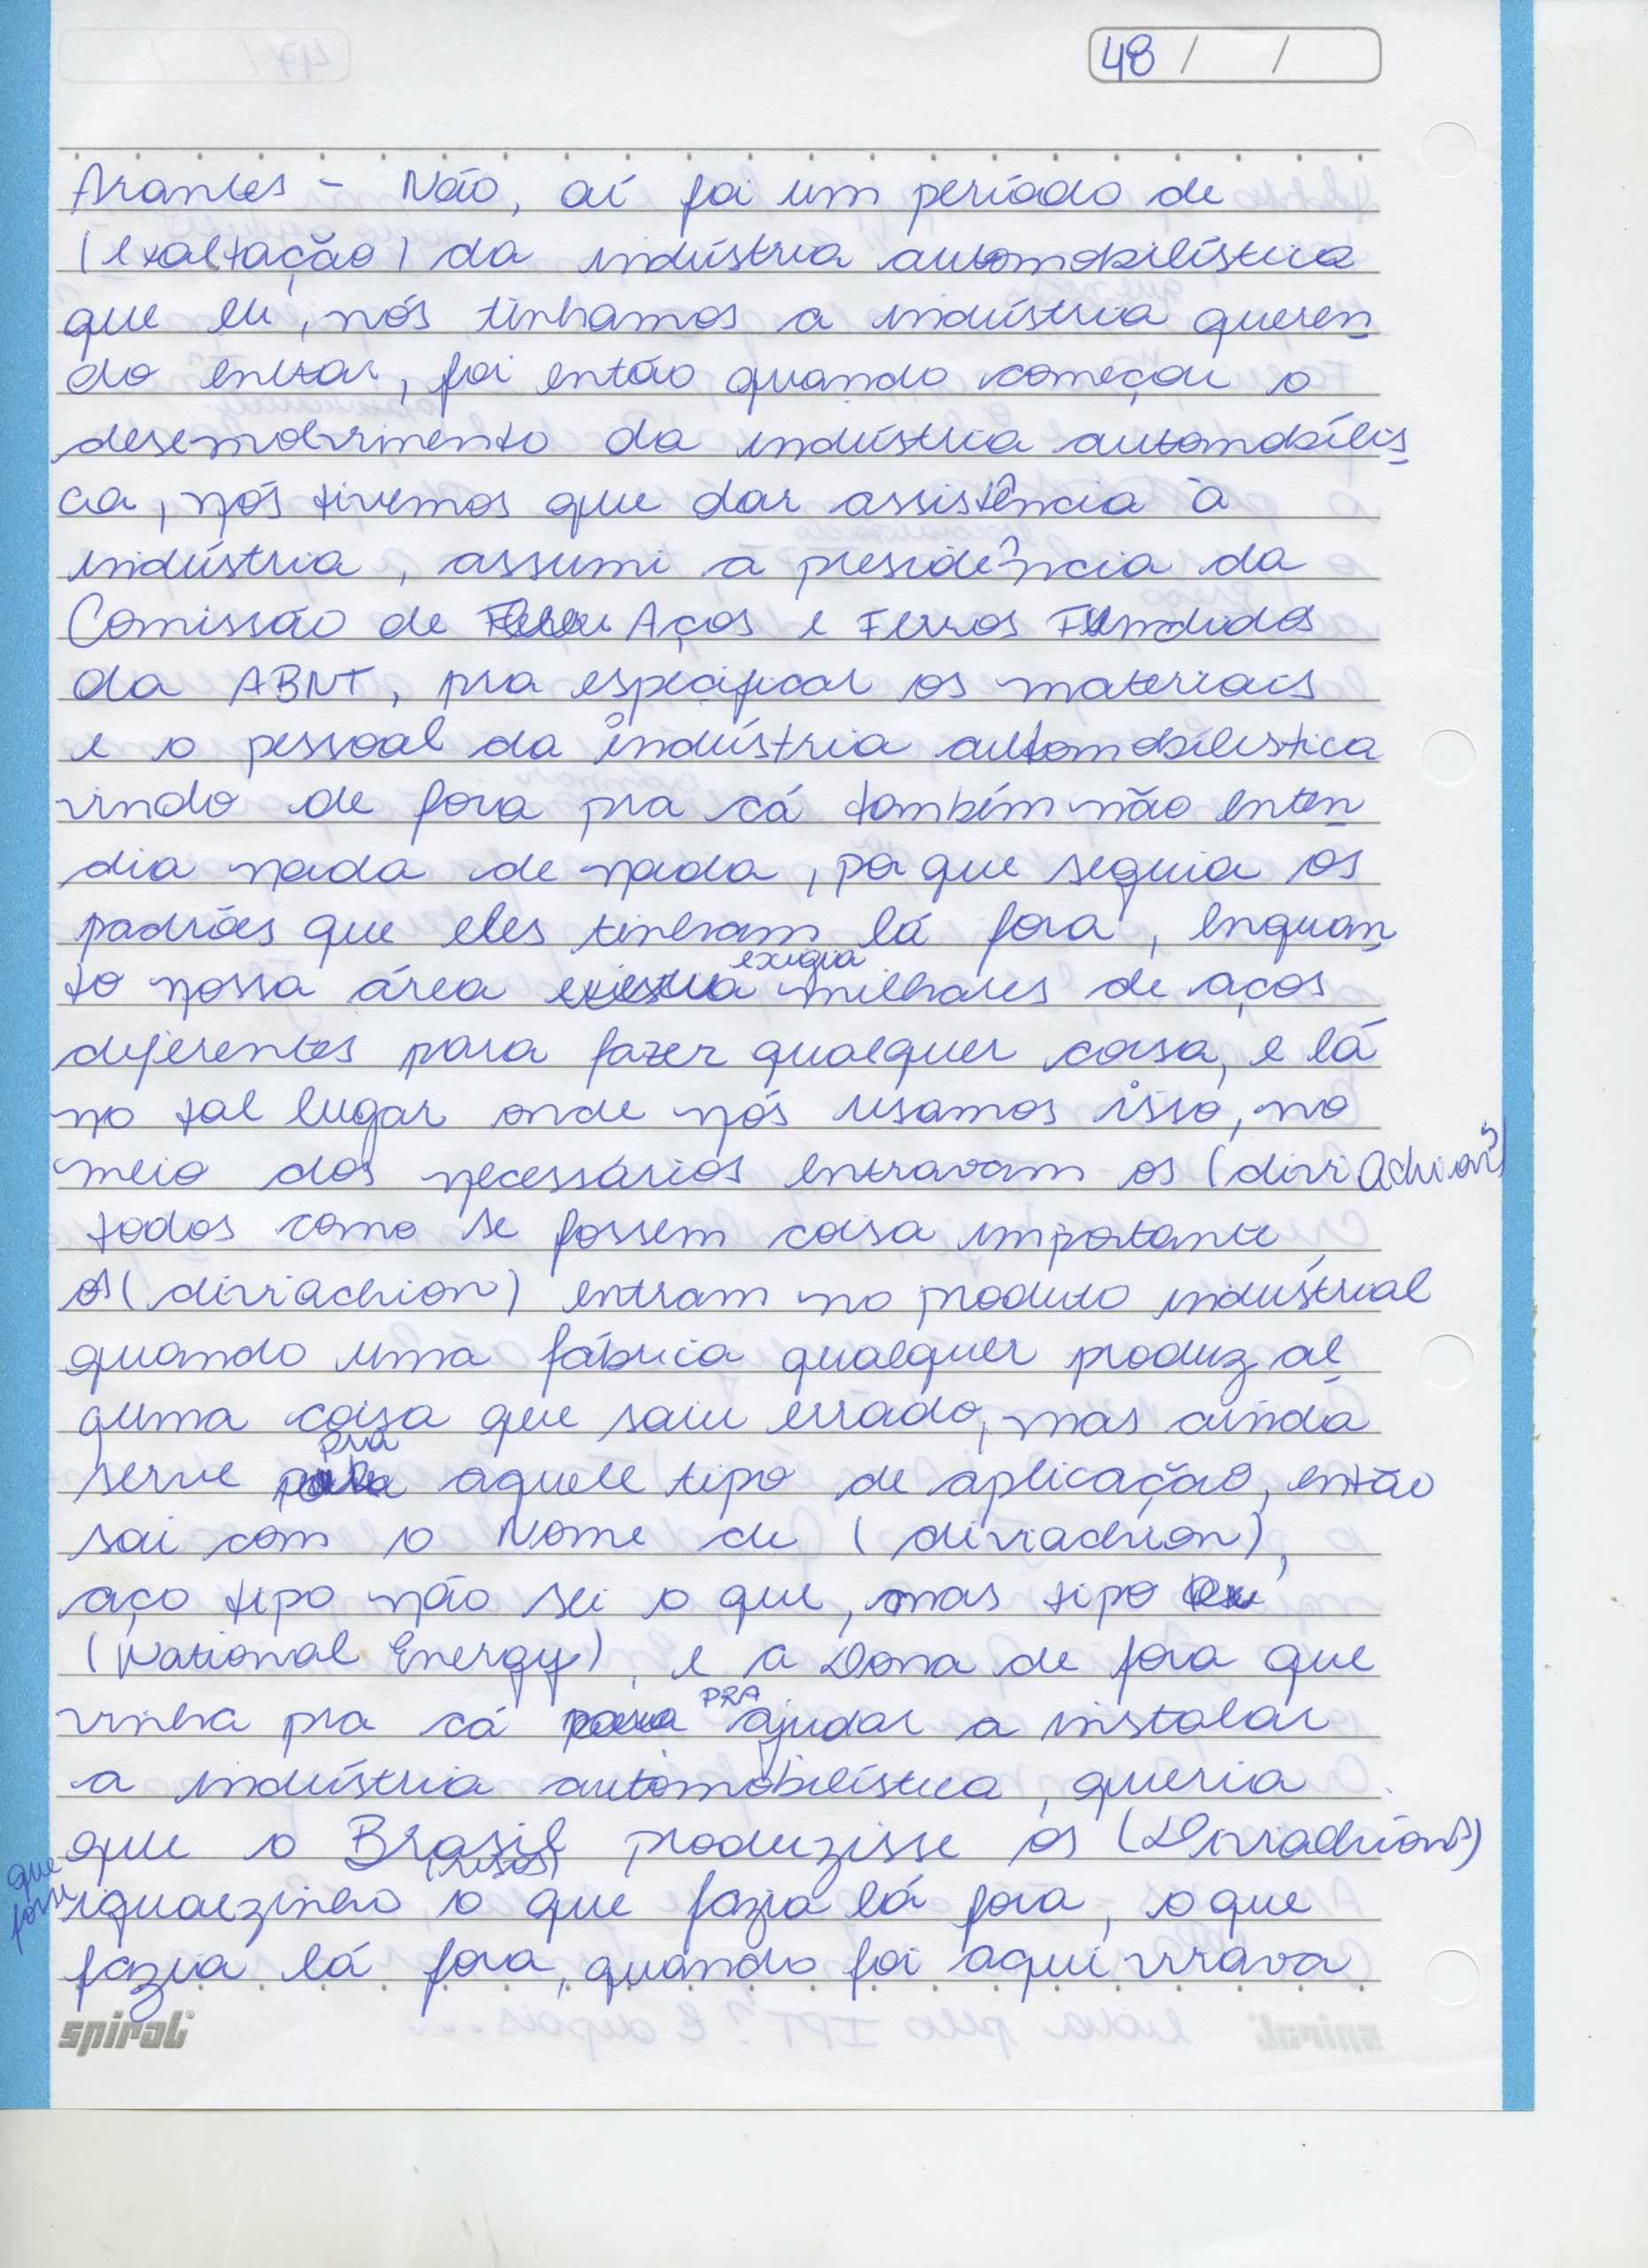 48 / /
Arantes - Não, aí foi um período de
(exaltação) da indústria automobilística
que eu, nós tínhamos a indústria queren
do entrar, foi então quando começou o
desenvolvimento da indústria automobílis
ca, nós tivemos que dar assistência à
indústria, assumi a presidência da
Comissão de Aços e Ferros Fundidos
da ABNT, pra especificar os materiais
e o pessoal da indústria automobilistica
vindo de fora pra cá também não enten
dia nada de nada, porque seguia os
padrões que eles tinham lá fora, enquan
to nossa área existia exigia milhares de aços
diferentes para fazer qualquer coisa, e lá
no tal lugar onde nós usamos isso, no
meio dos necessários entravam os (diviachions)
todos como se fossem coisa importante,
os (diviachion) entram no produto indústrial
quando uma fábrica qualquer produz al
guma coisa que saiu errado, mas ainda
serve para pra aquele tipo de aplicação, então
sai com o Nome de (diviachion),
aço tipo não sei o que, mas tipo
(National Energy), e a Dona de fora que
vinha pra cá para PRA ajudar a instalar
a indústria automobilística, queria
que o Brasil produzisse os (Diviachions)
que fosse igualzinho (risos) o que fazia lá fora, o que
fazia lá fora, quando foi aqui virava
spiral®